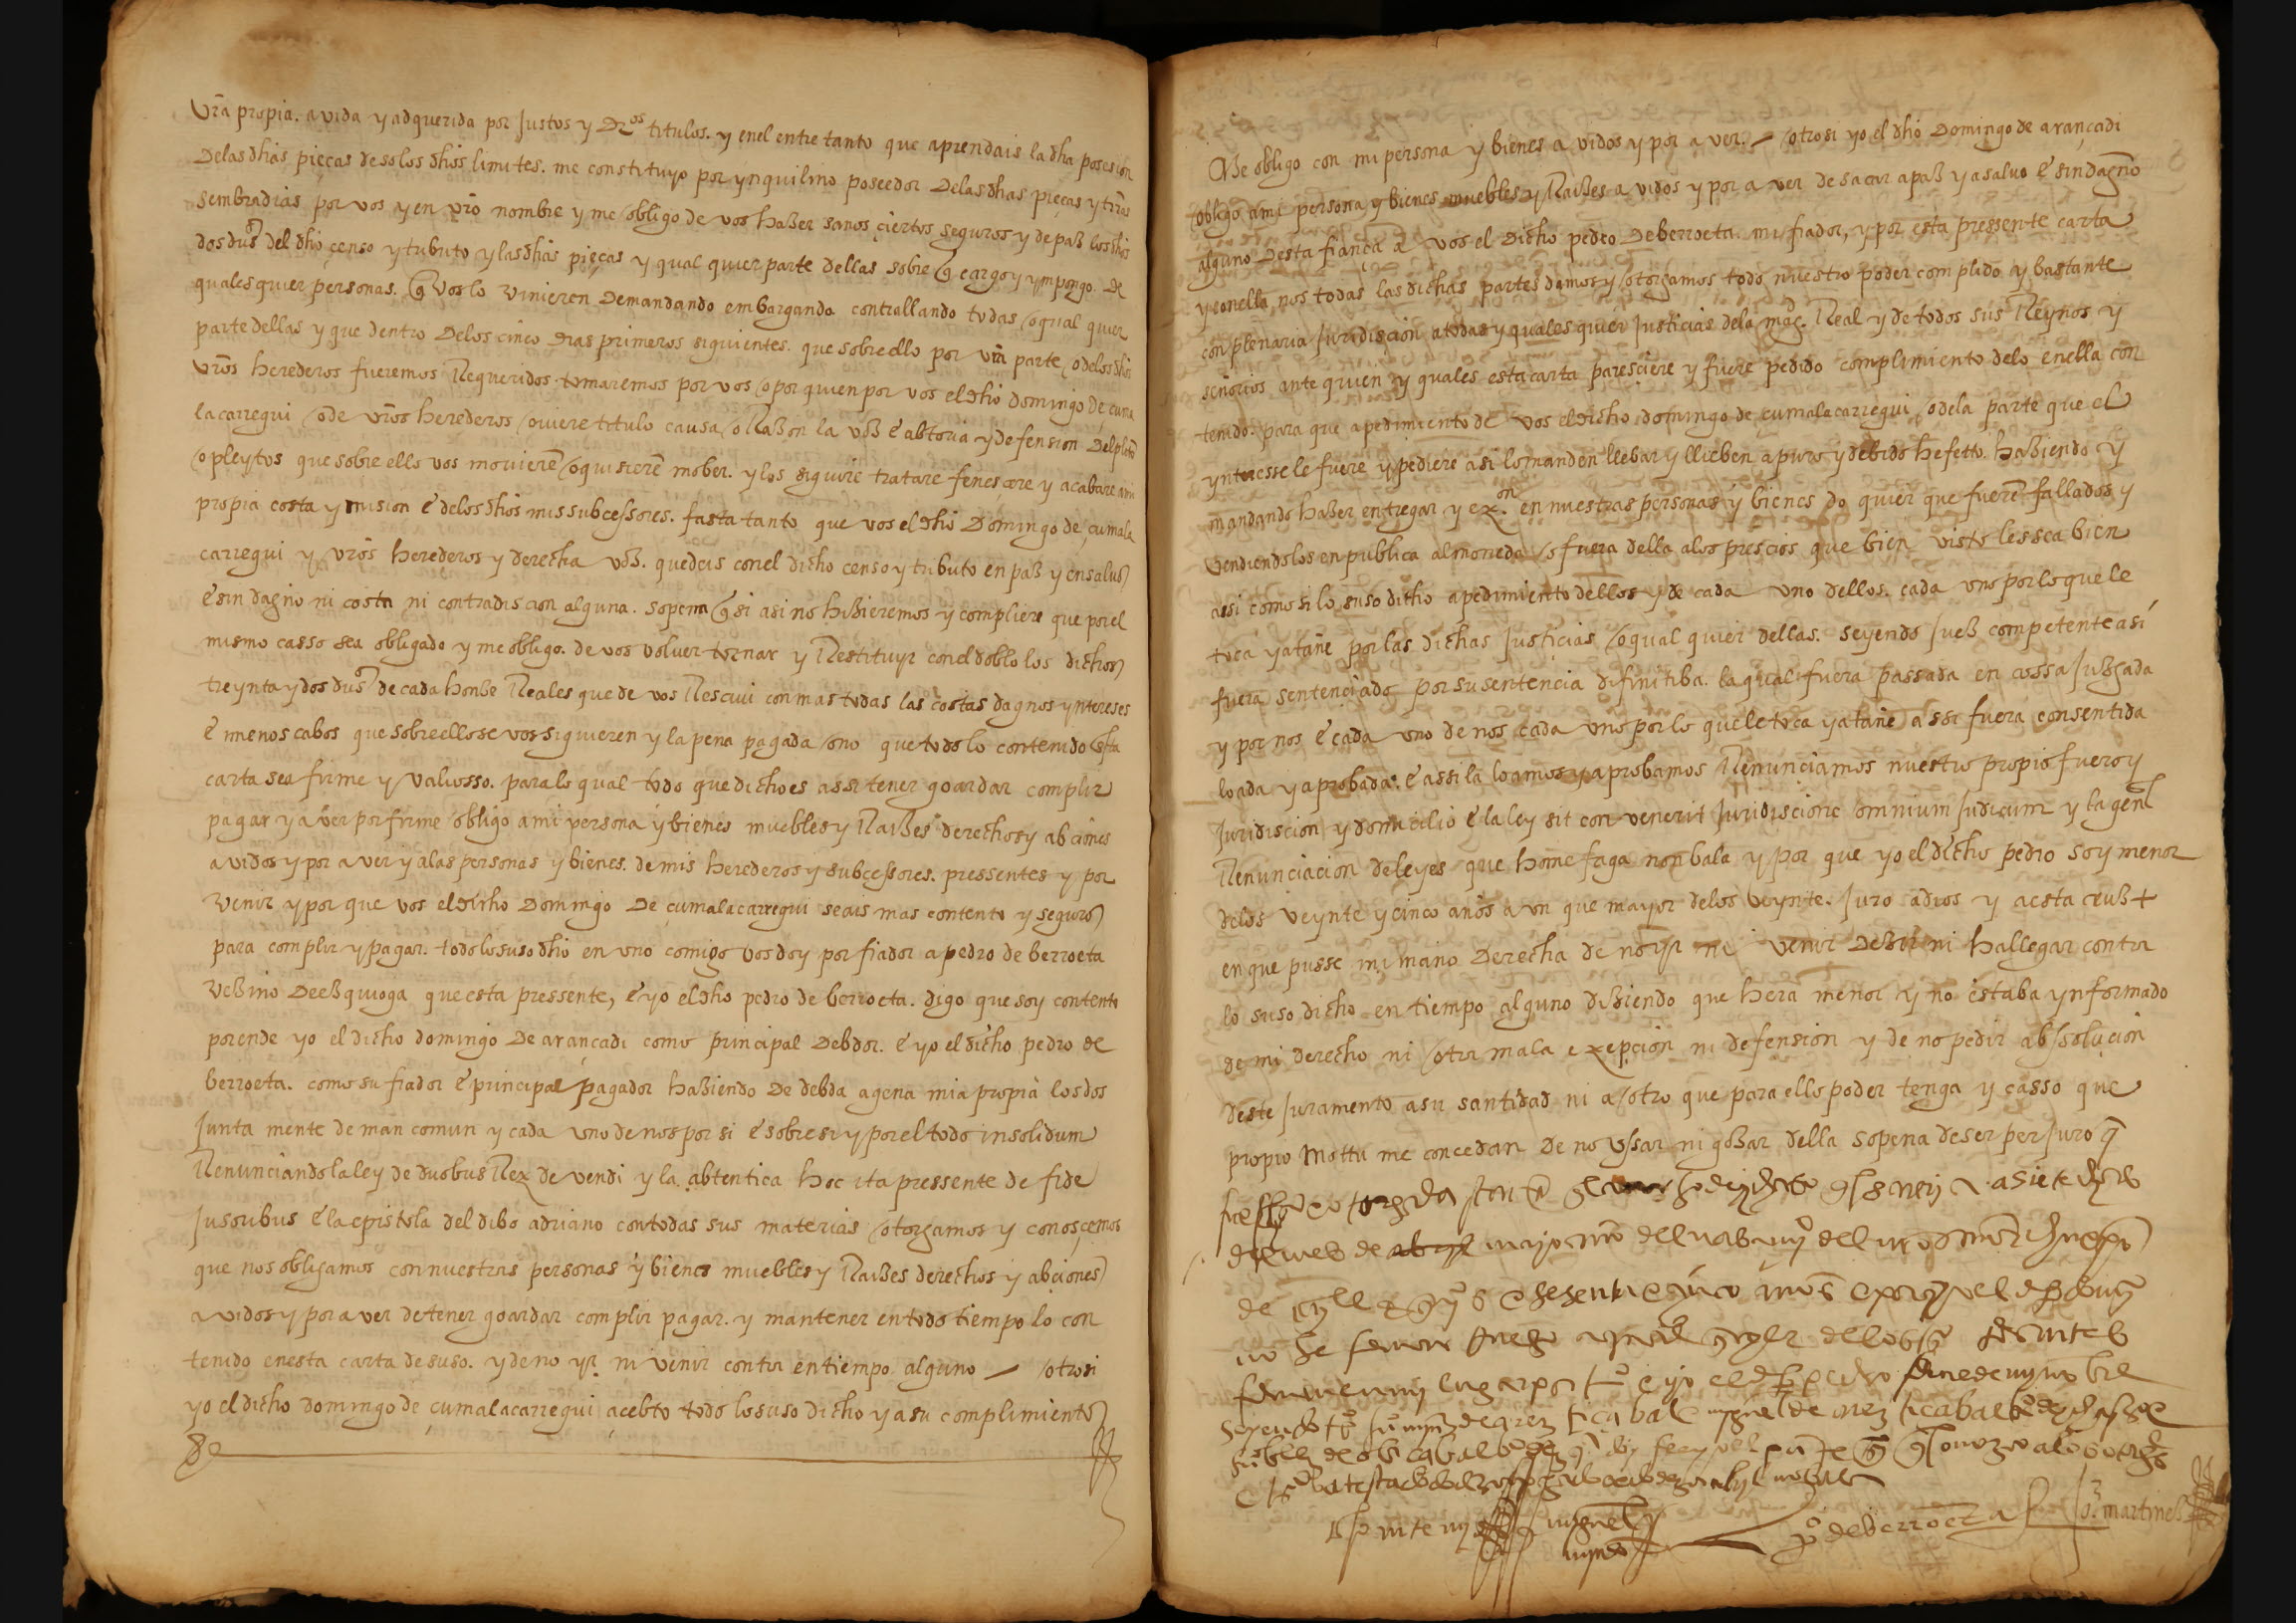 vr̃a propia. avida y adquerida por justos y dr̃os titulos. y enel entre tanto que aprendais la dha posesion
delas dhas pieças desolos dhos limites. me constituyo por ynquilino poseedor delas dhas pieças y trr̃as
sembradias por vos y en vr̃o nombre y me obligo de vos haßer sanos çiertos seguros y de paß los dhos
dos dus̃ del dho çenso y tributo y las dhas pieças y qual quier parte dellas sobre q̃ cargo y ympongo. de
quales quier personas. q̃ vos lo vinieren demandando embargando contrallando todas o qual quier
parte dellas y que dentro delos cinco dias primeros siguientes. que sobre ello por vr̃a parte o delos dhos
vr̃os herederos fueremos Requeridos. tomaremos por vos o por quien por vos el dho domingo de çuma
lacarregui o de vr̃os herederos oviere titulo causa o Raßon la voß e abtoria y defension del pleito
o pleytos que sobre ello vos moviere͂ o quisiere͂ mober. y los siguire tratare fenesçere y acabare a mi
propia costa y mision e delos dhos mis subcessores. fasta tanto que vos el dho Domingo de çumala
carregui y vr̃os herederos y derecha voß. quedeis con el dicho censo y tributo en paß y en salvo
e sin dagño ni costa ni contradiscion alguna. sopena q̃ si asi no hißieremos y compliere que por el
mismo casso sea obligado y me obligo. de vos volver tornar y Restituyr con el doblo los dichos
treynta y dos dus̃ de cada honße Reales que de vos Resciui con mas todas las costas dagnos yntereses
e menos cabos que sobre ello se vos siguieren y la pena pagada o no que todo lo contenido esta
carta sea firme y valiosso. para lo qual todo que dicho es assi tener goardar complir
pagar y aver por firme obligo a mi persona y bienes muebles y Raißes derechos y abciones
avidos y por aver y alas personas y bienes. de mis herederos y subcessores. pressentes y por
venir y por que vos el dicho Domingo de çumalacarregui seais mas contento y seguro
para complir y pagar. todo lo suso dho en uno comigo vos doy por fiador a pedro de berroeta
veßino de eßquioga que esta pressente, e yo el dho pedro de berroeta. digo que soy contento
por ende yo el dicho domingo de arançadi como principal debdor. e yo el dicho pedro de
berroeta. como su fiador e principal pagador haßiendo de debda agena mia propia los dos
junta mente de man comun y cada uno de nos por si e sobre si y por el todo insolidum
Renunciando la ley de duobus Rex de vendi y la abtentica hoc ita pressente de fide
jusoribus e la epistola del dibo adriano con todas sus materias otorgamos y conosçemos
que nos obligamos con nuestras personas y bienes muebles y Raißes derechos y abciones
avidos y por aver de tener goardar complir pagar. y mantener en todo tiempo lo con
tenido en esta carta de suso. y de no yr. ni venir contra en tiempo alguno — otrosi
yo el dicho domingo de çumalacarregui açebto todo lo suso dicho y a su complimiento
Me obligo con mi persona y bienes avidos y por aver. — otrosi yo el dho Domingo de arançadi
obligo a mi persona y bienes muebles y Raißes avidos y por aver de sacar a paß y a salvo e sin dagño
alguno desta fiança a vos el Dicho pedro de berroeta. mi fiador, y por esta pressente carta
y con ella, nos todas las dichas partes damos y otorgamos todo nuestro poder complido y bastante
con plenaria juridisçion a todas y quales quier justicias dela mag̃. Real y de todos sus Reynos y
señorios ante quien y quales esta carta paresçiere y fuere pedido complimiento delo en ella con
tenido. para que a pedimiento de vos el dicho domingo de çumalacarregui o dela parte que el
ynteresse le fuere y pediere asi lo manden llebar y llieben a puro y debido hefetto. haßiendo y
mandando haßer entregar y ex.on en nuestras personas y bienes do quier que fuere͂ fallados y
vendiendolos en publica almoneda o fuera della alos presçios que bien visto les sea bien
assi como si lo suso dicho a pedimiento dellos y de cada uno dellos. cada uno por lo que le
toca y atañe por las dichas justicias o qual quier dellas. seyendo jueß competente asi
fuera sentençiado por su sentencia difinitiba. la qual fuera passada en cossa jußgada
y por nos e cada uno de nos cada uno por lo que le toca y atañe assi fuera consentida
loada y aprobada. e assi la loamos y aprobamos Renunciamos nuestro propio fuero y
juridiscion y domicilio e la ley sit convenerit juridiscione omnium judicum y la gen̄l
Renunciacion de leyes que home faga non bala y por que yo el dicho pedro soy menor
delos veynte y cinco años a un que mayor delos veynte. juro a dios y a esta cruß +
en que pusse mi mano derecha de no yr ni venir deßir ni hallegar contra
lo suso dicho en tiempo alguno dißiendo que hera menor y no estaba ynformado
de mi derecho ni otra mala exepçion ni defension y de no pedir abssoluçion
deste juramento a su santidad ni a otro que para ello poder tenga y casso que
propio mottu me concedan de no ussar ni goßar della sopena de ser perjuro q̃
fue otorgada a siete dias
del mes de mayo año del nascimy° del
de myll e e sesenta e cinco años
miguel
p° de berroeta
martines